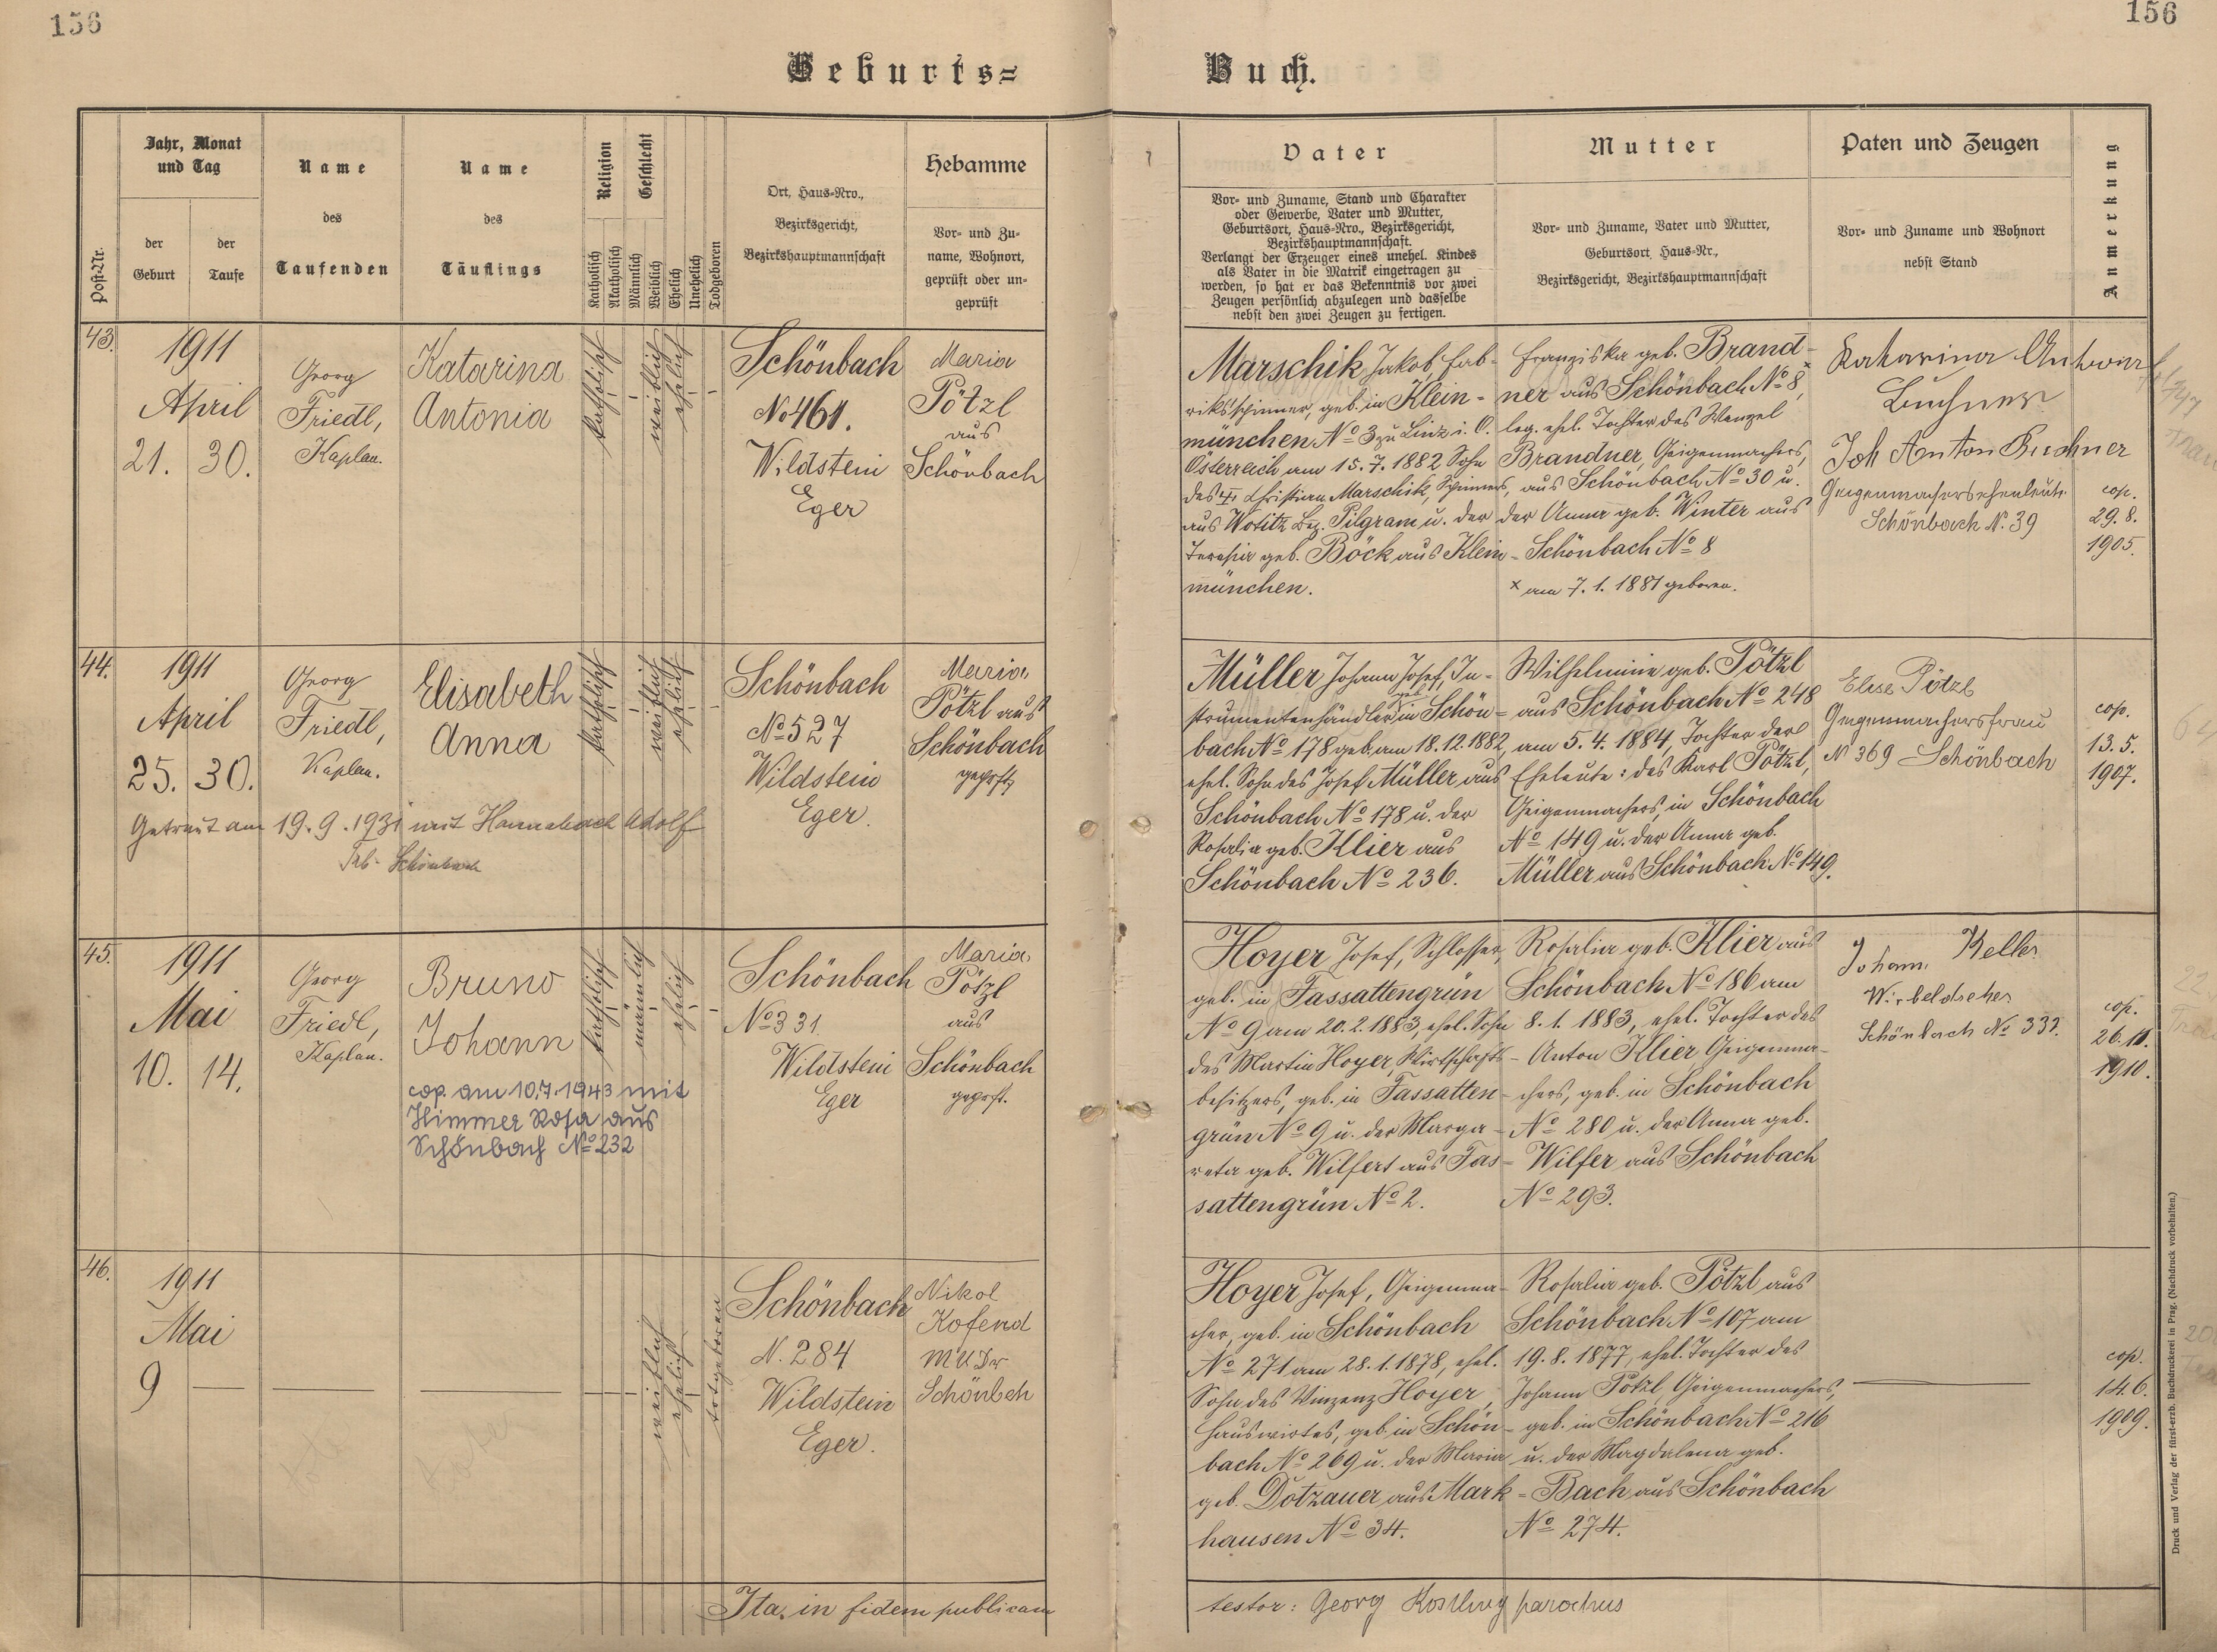 156
156
Geburts=
Buch.
Post-Nr.
Jahr, Monat
und Tag
der
Geburt
der
Taufe
Name
des
Taufenden
Name
des
Täuflings
Religion
Katholisch
Akatholisch
Geschlecht
Männlich
Weiblich
Ehelich
Unehelich
Todgeboren
Ort, Haus=Nro.,
Bezirksgericht,
Bezirkshauptmannschaft
Hebamme
Vor= und Zu=
name, Wohnort,
geprüft oder un=
geprüft
Vater
Vor= und Zuname, Stand und Charakter
oder Gewerbe, Vater und Mutter,
Geburtsort, Haus=Nro., Bezirksgericht,
Bezirkshauptmannschaft.
Verlangt der Erzeuger eines unehel. Kindes
als Vater in die Matrik eingetragen zu
werden, so hat er das Bekenntnis vor zwei
Zeugen persönlich abzulegen und dasselbe
nebst den zwei Zeugen zu fertigen.
Mutter
Vor= und Zuname, Vater und Mutter,
Geburtsort, Haus=Nr.,
Bezirksgericht, Bezirkshauptmannschaft
Paten und Zeugen
Vor= und Zuname und Wohnort
nebst Stand
Anmerkung
43.
1911
April
21.
30.
Georg
Friedl,
Kaplan.
Katarina
Antonia
katholisch
weiblich
ehelich
Schönbach
No 461.
Wildstein
Eger
Maria
Pötzl
aus
Schönbach
Marschik Jakob, Fab-
riksspinner, geb. in Klein-
münchen No 3 zu Linz i. O.
Österreich am 15.7.1882 Sohn
des Christian Marschik, Spinners,
aus Wotitz Bez. Pilgram u. der
Teresia geb. Böck aus Klein-
münchen.
Franziska geb. Brand-
ner aus Schönbach No 8, x
leg. ehel. Tochter des Wenzel
Brandner, Geigenmachers,
aus Schönbach No 30 u.
der Anna geb. Winter aus
Schönbach No 8
x am 7.1.1881 geboren.
Katharina
Buchner
Joh Anton Buchner
Geigenmachersehenleute
Schönbach N. 39
cop.
29.8.
1905.
44.
1911
April
25.
30.
Georg
Friedl,
Kaplan.
Elisabeth
Anna
katholisch
weiblich
ehelich
Schönbach
No 527
Wildstein
Eger.
Maria
Pötzl aus
Schönbach
geprft
Getraut am 19.9.1931 mit Hannabach Adolf
Schönbach
Müller Johann Josef, In-
strumentenhändler in Schön-
bach No 178 geb. am 18.12.1882,
ehel. Sohn des Josef Müller aus
Schönbach No 178 u. der
Rosalia geb. Klier aus
Schönbach No 236.
Wilhelmine geb. Pötzl
aus Schönbach No 248
am 5.4.1884, Tochter der
Eheleute: des Karl Pötzl,
Geigenmachers, in Schönbach
No 149 u. der Anna geb.
Müller aus Schönbach No 149.
Elise Pötzl
Geigenmachersfrau
N 369 Schönbach
cop.
13.5.
1907.
45.
1911
Mai
10.
14.
Georg
Friedl,
Kaplan.
Bruno
Johann
katholisch
männlich
ehelich
cop. am 10.7.1943 mit
Himmer Rosa aus
Schönbach No 232
Schönbach
No 331.
Wildstein
Eger
Maria
Pötzl
aus
Schönbach
geprft.
Hoyer Josef, Schlosser,
geb. in Fassattengrün
No 9 am 20.2.1883, ehel. Sohn
des Martin Hoyer, Wirtschafts-
besitzers, geb. in Fassatten-
grün No 9 u. der Marga-
reta geb. Wilfert aus Fas-
sattengrün No 2.
Rosalia geb. Klier aus
Schönbach No 186 am
8.1.1883, ehel. Tochter des
Anton Klier Geigenma-
chers, geb. in Schönbach
No 280 u. der Anna geb.
Wilfer aus Schönbach
No 293.
Johann Keller
Wirbeldreher
Schönbach No 332.
cop.
26.11.
1910.
46.
1911
Mai
9
weiblich
ehelich
totgeboren
Schönbach
N. 284
Wildstein
Eger.
Nikol
Kofend
MUDr
Schönbch
Hoyer Josef, Geigenma-
cher, geb. in Schönbach
No 271 am 28.1.1878, ehel.
Sohn des Vinzenz Hoyer,
Hauswirtes, geb. in Schön-
bach No 269 u. der Maria
geb. Dotzauer aus Mark-
hausen No 34.
Rosalia geb. Pötzl aus
Schönbach No 107 am
19.8.1877, ehel. Tochter des
Johann Pötzl, Geigenmachers,
geb. in Schönbach No 216
u. der Magdalena geb.
Bach aus Schönbach
No 274.
cop.
14.6.
1909.
Ita in fidem publicam
testor: Georg parochus
Druck und Verlag der fürst-erzb. Buchdruckerei in Prag. (Nachdruck vorbehalten.)